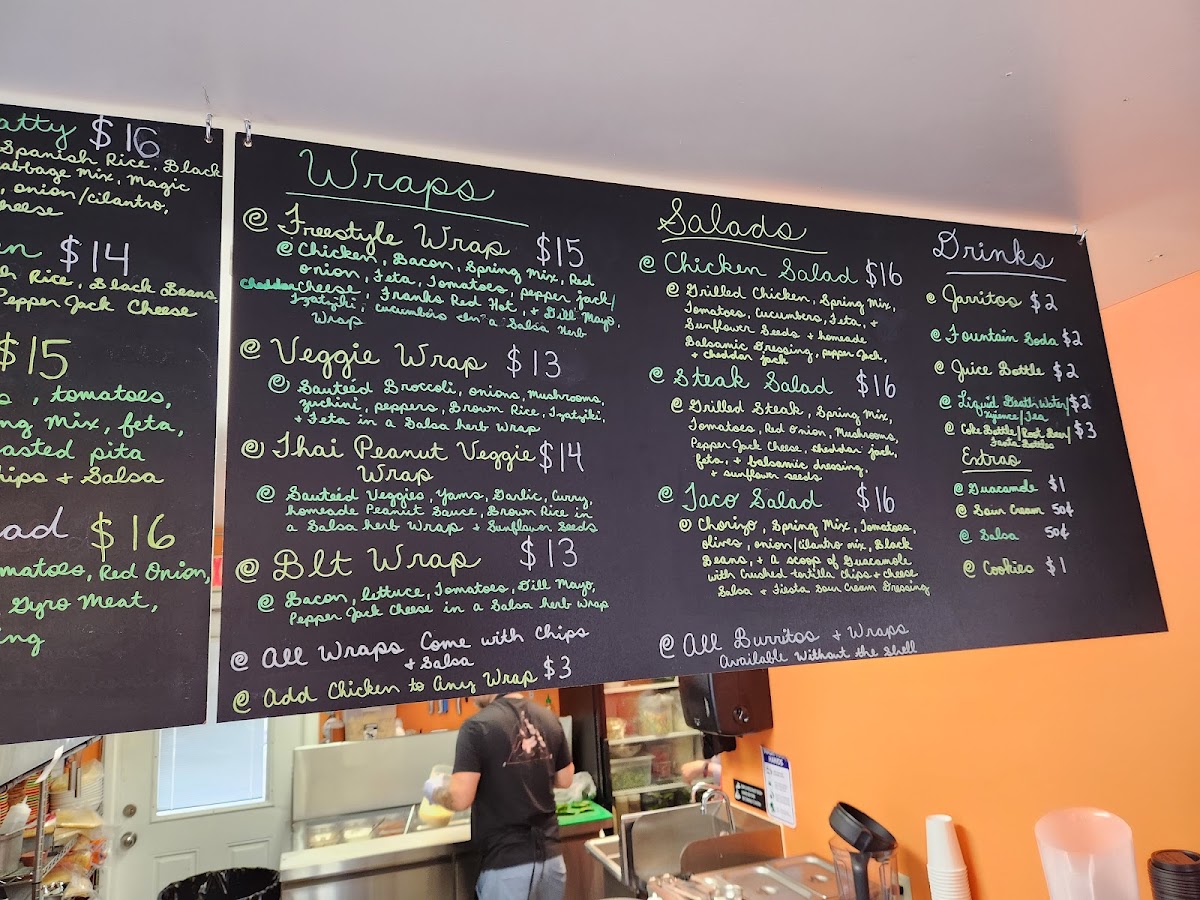 atty $16
Spanish Rice, Black
abbage mix, Magic
, onion/cilantro,
heese
en $14
h Rice, Black Beans.
Pepper Jack Cheese
$15
s, tomatoes,
ng Mix, feta,
asted pita
hips + Salsa
ad $16
matoes, Red Onion,
Gyro Meat,
ing
Wraps
@ Freestyle Wrap $15
@ Chicken, Bacon, Spring Mix, Red
onion, Feta, Tomatoes, pepper jack/
cheddar cheese, Franks Red Hot, + Dill Mayo,
Tzatziki, cucumbers In a Salsa Herb
Wrap
@ Veggie Wrap $13
@ Sauteéd Broccoli, onions, mushrooms,
zuchini, peppers, Brown Rice, Tzatziki
+ Feta in a Salsa herb Wrap
@ Thai Peanut Veggie $14
Wrap
@ Sauteéd Veggies, Yams, Garlic, Curry,
homeade Peanut Sauce, Brown Rice in
a Salsa herb Wrap + Sunflower Seeds
@ Blt Wrap $13
@ Bacon, lettuce, Tomatoes, Dill Mayo,
Pepper Jack Cheese in a Salsa herb Wrap
@ All Wraps Come with Chips
+ Salsa
@ Add Chicken to Any Wrap $3
Salads
@ Chicken Salad $16
@ Grilled Chicken, Spring Mix,
Tomatoes, Cucumbers, Feta, +
Sunflower Seeds + homeade
Balsamic Dressing, pepper Jack,
+ cheddar jack
@ Steak Salad $16
@ Grilled Steak, Spring Mix,
Tomatoes, Red Onion, Mushrooms,
Pepper Jack Cheese, cheddar jack,
feta, + balsamic dressing,
+ sunflower seeds
@ Taco Salad $16
@ Chorizo, Spring Mix, Tomatoes,
olives, onion/cilantro mix, Black
Beans, + a scoop of Guacamole
with Crushed tortilla Chips + cheese
Salsa + Fiesta Sour Cream Dressing
@ All Burritos + Wraps
Available Without the Shell
Drinks
@ Jarritos $2
@ Fountain Soda $2
@ Juice Bottle $2
@ Liquid Death Water/ $2
/Tea
@ Coke Bottle/Root Beer/ $3
Fanta Bottles
Extras
@ Guacamole $1
@ Sour Cream 50¢
@ Salsa 50¢
@ Cookies $1